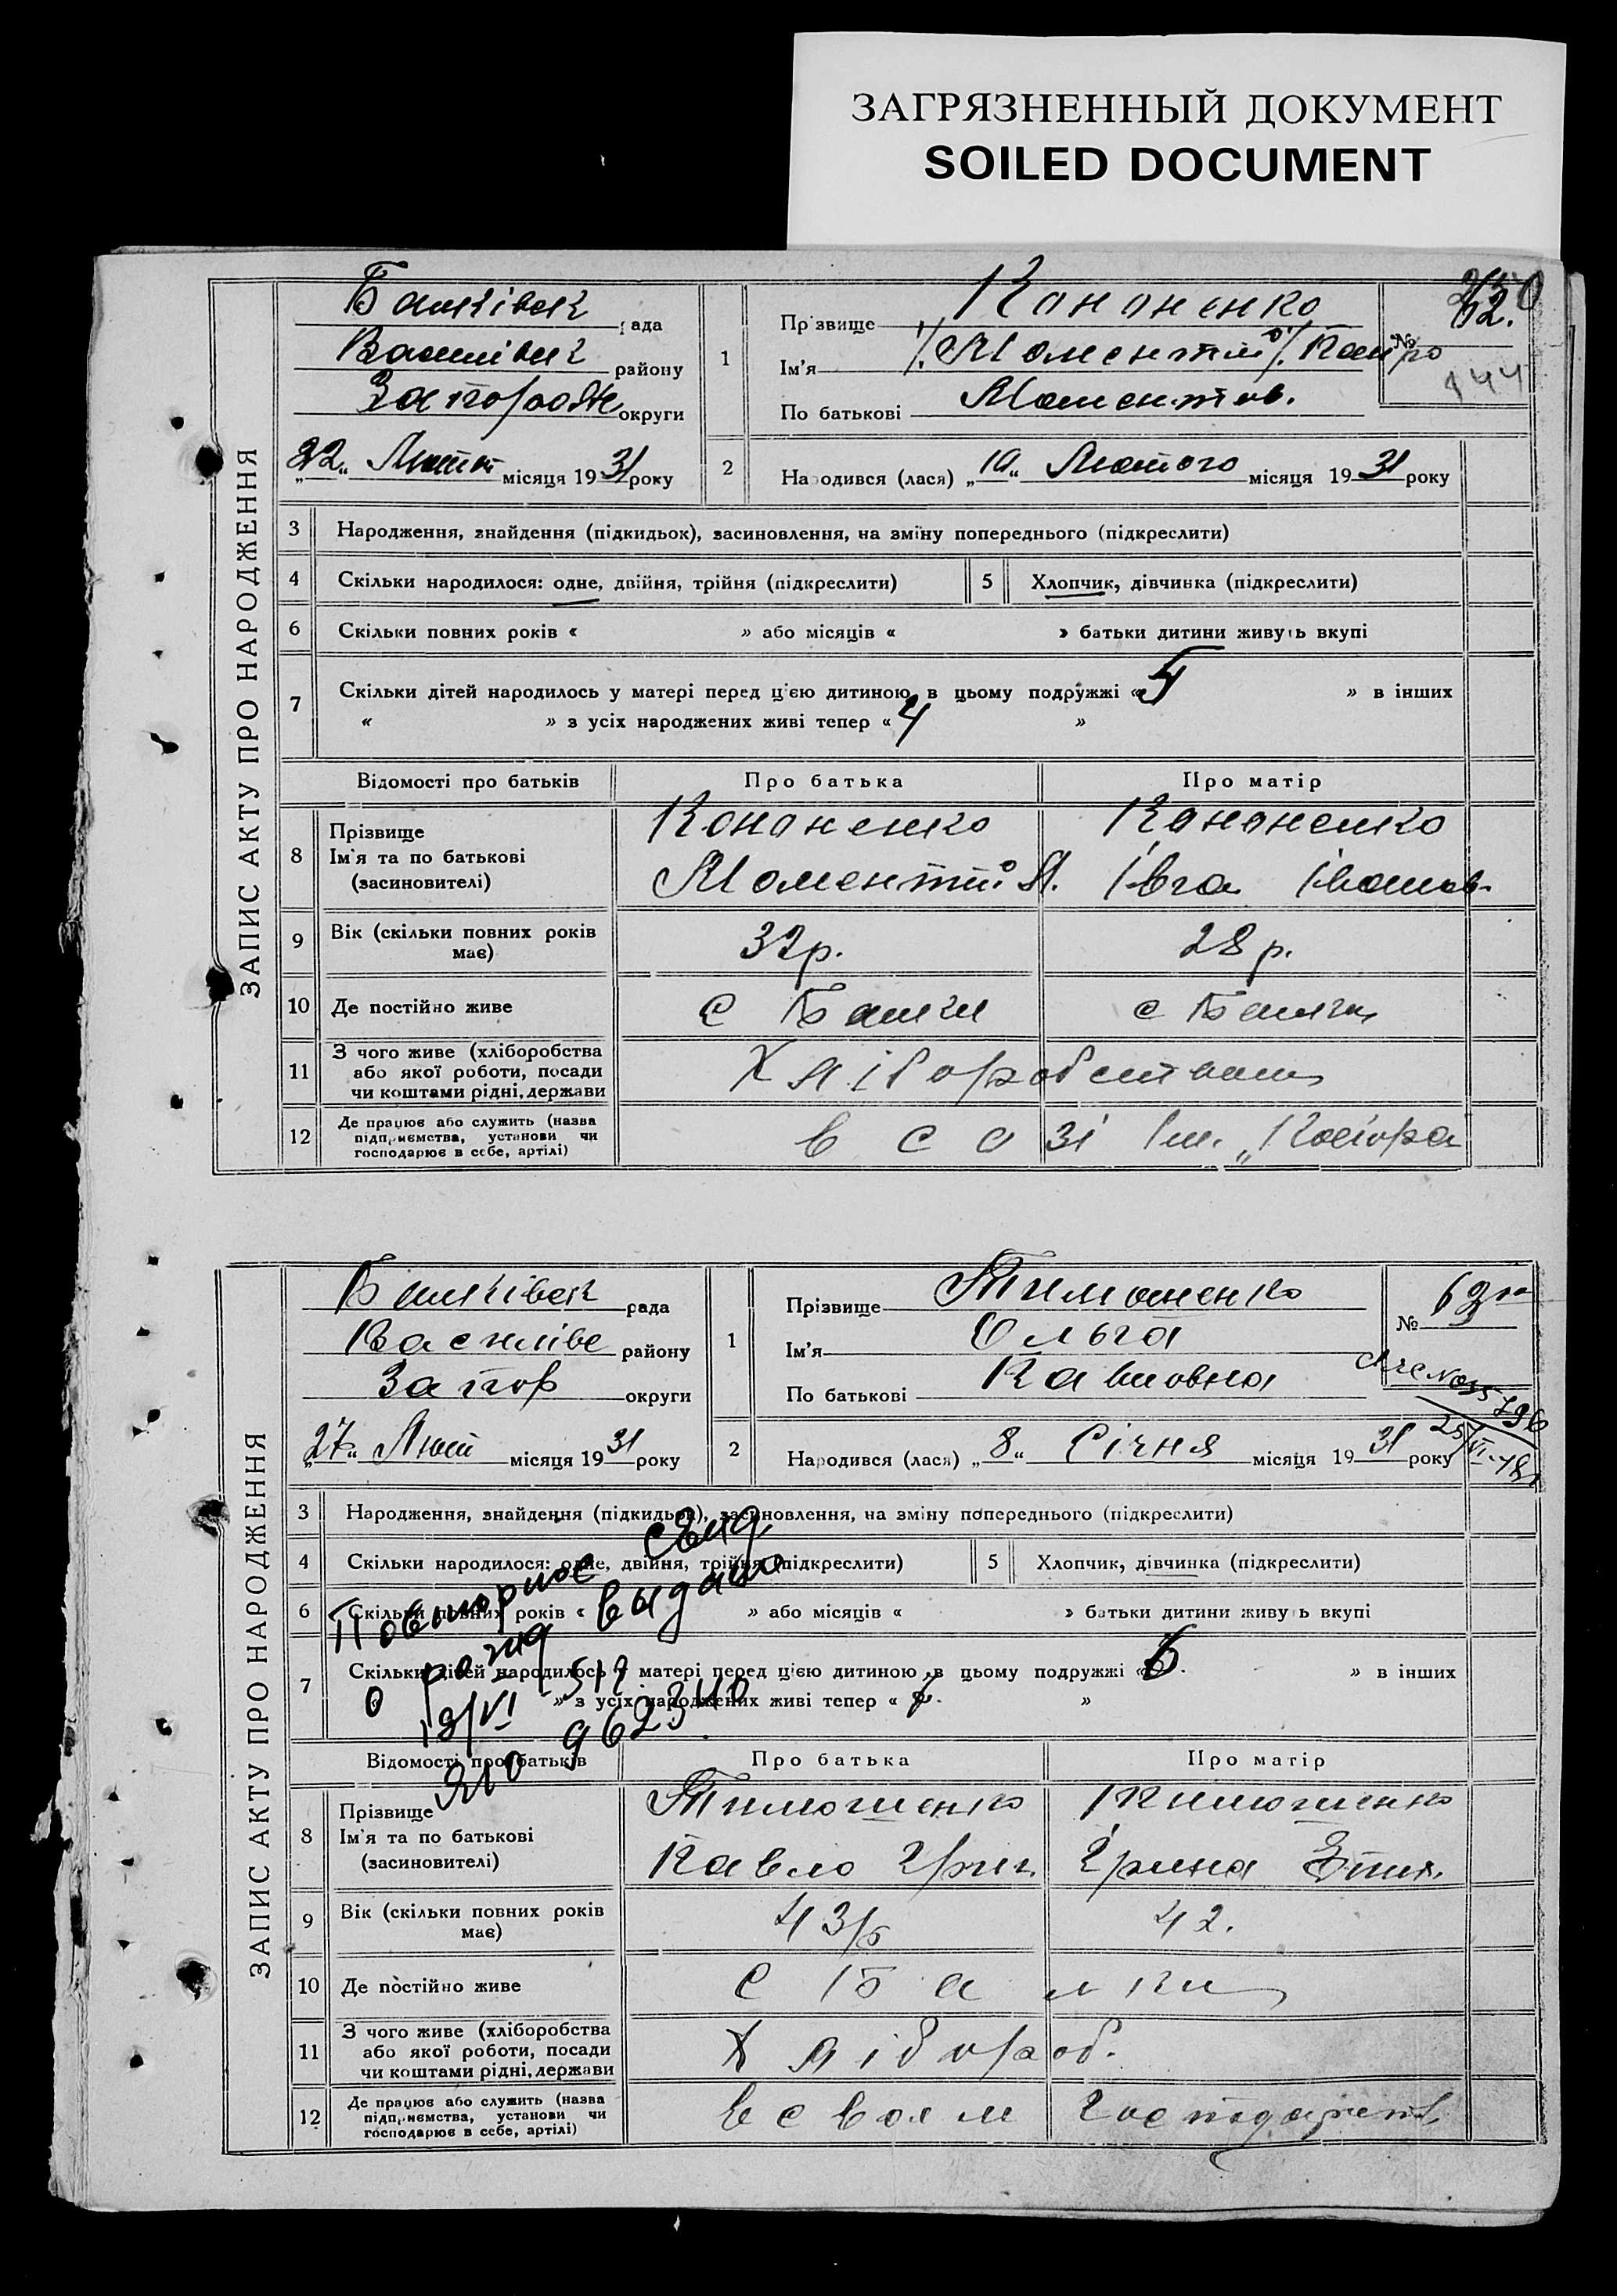 ЗАГРЯЗНЕННЫЙ ДОКУМЕНТ
SOILED DOCUMENT
ЗАПИС АКТУ ПРО НАРОДЖЕННЯ
Балківськ рада
Василівськ району
Запорожж округи
„22“ Лютого місяця 1931 року
1
Прізвище Кононенко
Ім'я Петро
По батькові
№ 62.
144
2
Народився (лася) „10“ Лютого місяця 1931 року
3 Народження, знайдення (підкидьок), засиновлення, на зміну попереднього (підкреслити)
4 Скільки народилося: одне, двійня, трійня (підкреслити)
5 Хлопчик, дівчинка (підкреслити)
6 Скільки повних років « » або місяців « » батьки дитини живуть вкупі
7 Скільки дітей народилось у матері перед цією дитиною в цьому подружжі «5 » в інших
« » з усіх народжених живі тепер «4 »
Відомості про батьків Про батька Про матір
8 Прізвище Кононенко Кононенко
Ім'я та по батькові
(засиновителі) Івга Іванов.
9 Вік (скільки повних років має) 32р. 28р.
10 Де постійно живе с Балки с Балки
11 З чого живе (хліборобства
або якої роботи, посади
чи коштами рідні, держави
Хліборобством
12 Де працює або служить (назва
підприємства, установи чи
господарює в себе, артілі)
в созі ім. „Косіора
ЗАПИС АКТУ ПРО НАРОДЖЕННЯ
Балківськ рада
Василівс району
Запор округи
„27“ Лют місяця 1931 року
1
Прізвище Тимошенко
Ім'я Ольга
По батькові Павловна
№ 63
2
Народився (лася) „8“ Січня місяця 1931 року
3 Народження, знайдення (підкидьок), засиновлення, на зміну попереднього (підкреслити)
4 Скільки народилося: одне, двійня, трійня (підкреслити)
5 Хлопчик, дівчинка (підкреслити)
6 Скільки повних років « » або місяців « » батьки дитини живуть вкупі
7 Скільки дітей народилось у матері перед цією дитиною в цьому подружжі «6. » в інших
« » з усіх народжених живі тепер « »
Повторное свид
о рожд видано
18/VI
ЯЮ 962340
Відомості про батьків Про батька Про матір
8 Прізвище Тимошенко Тимошенко
Ім'я та по батькові Павло Григ. Ірина
(засиновителі)
9 Вік (скільки повних років має) 43 42.
10 Де постійно живе с Балки
11 З чого живе (хліборобства
або якої роботи, посади
чи коштами рідні, держави
Хлібороб.
12 Де працює або служить (назва
підприємства, установи чи
господарює в себе, артілі)
в своям